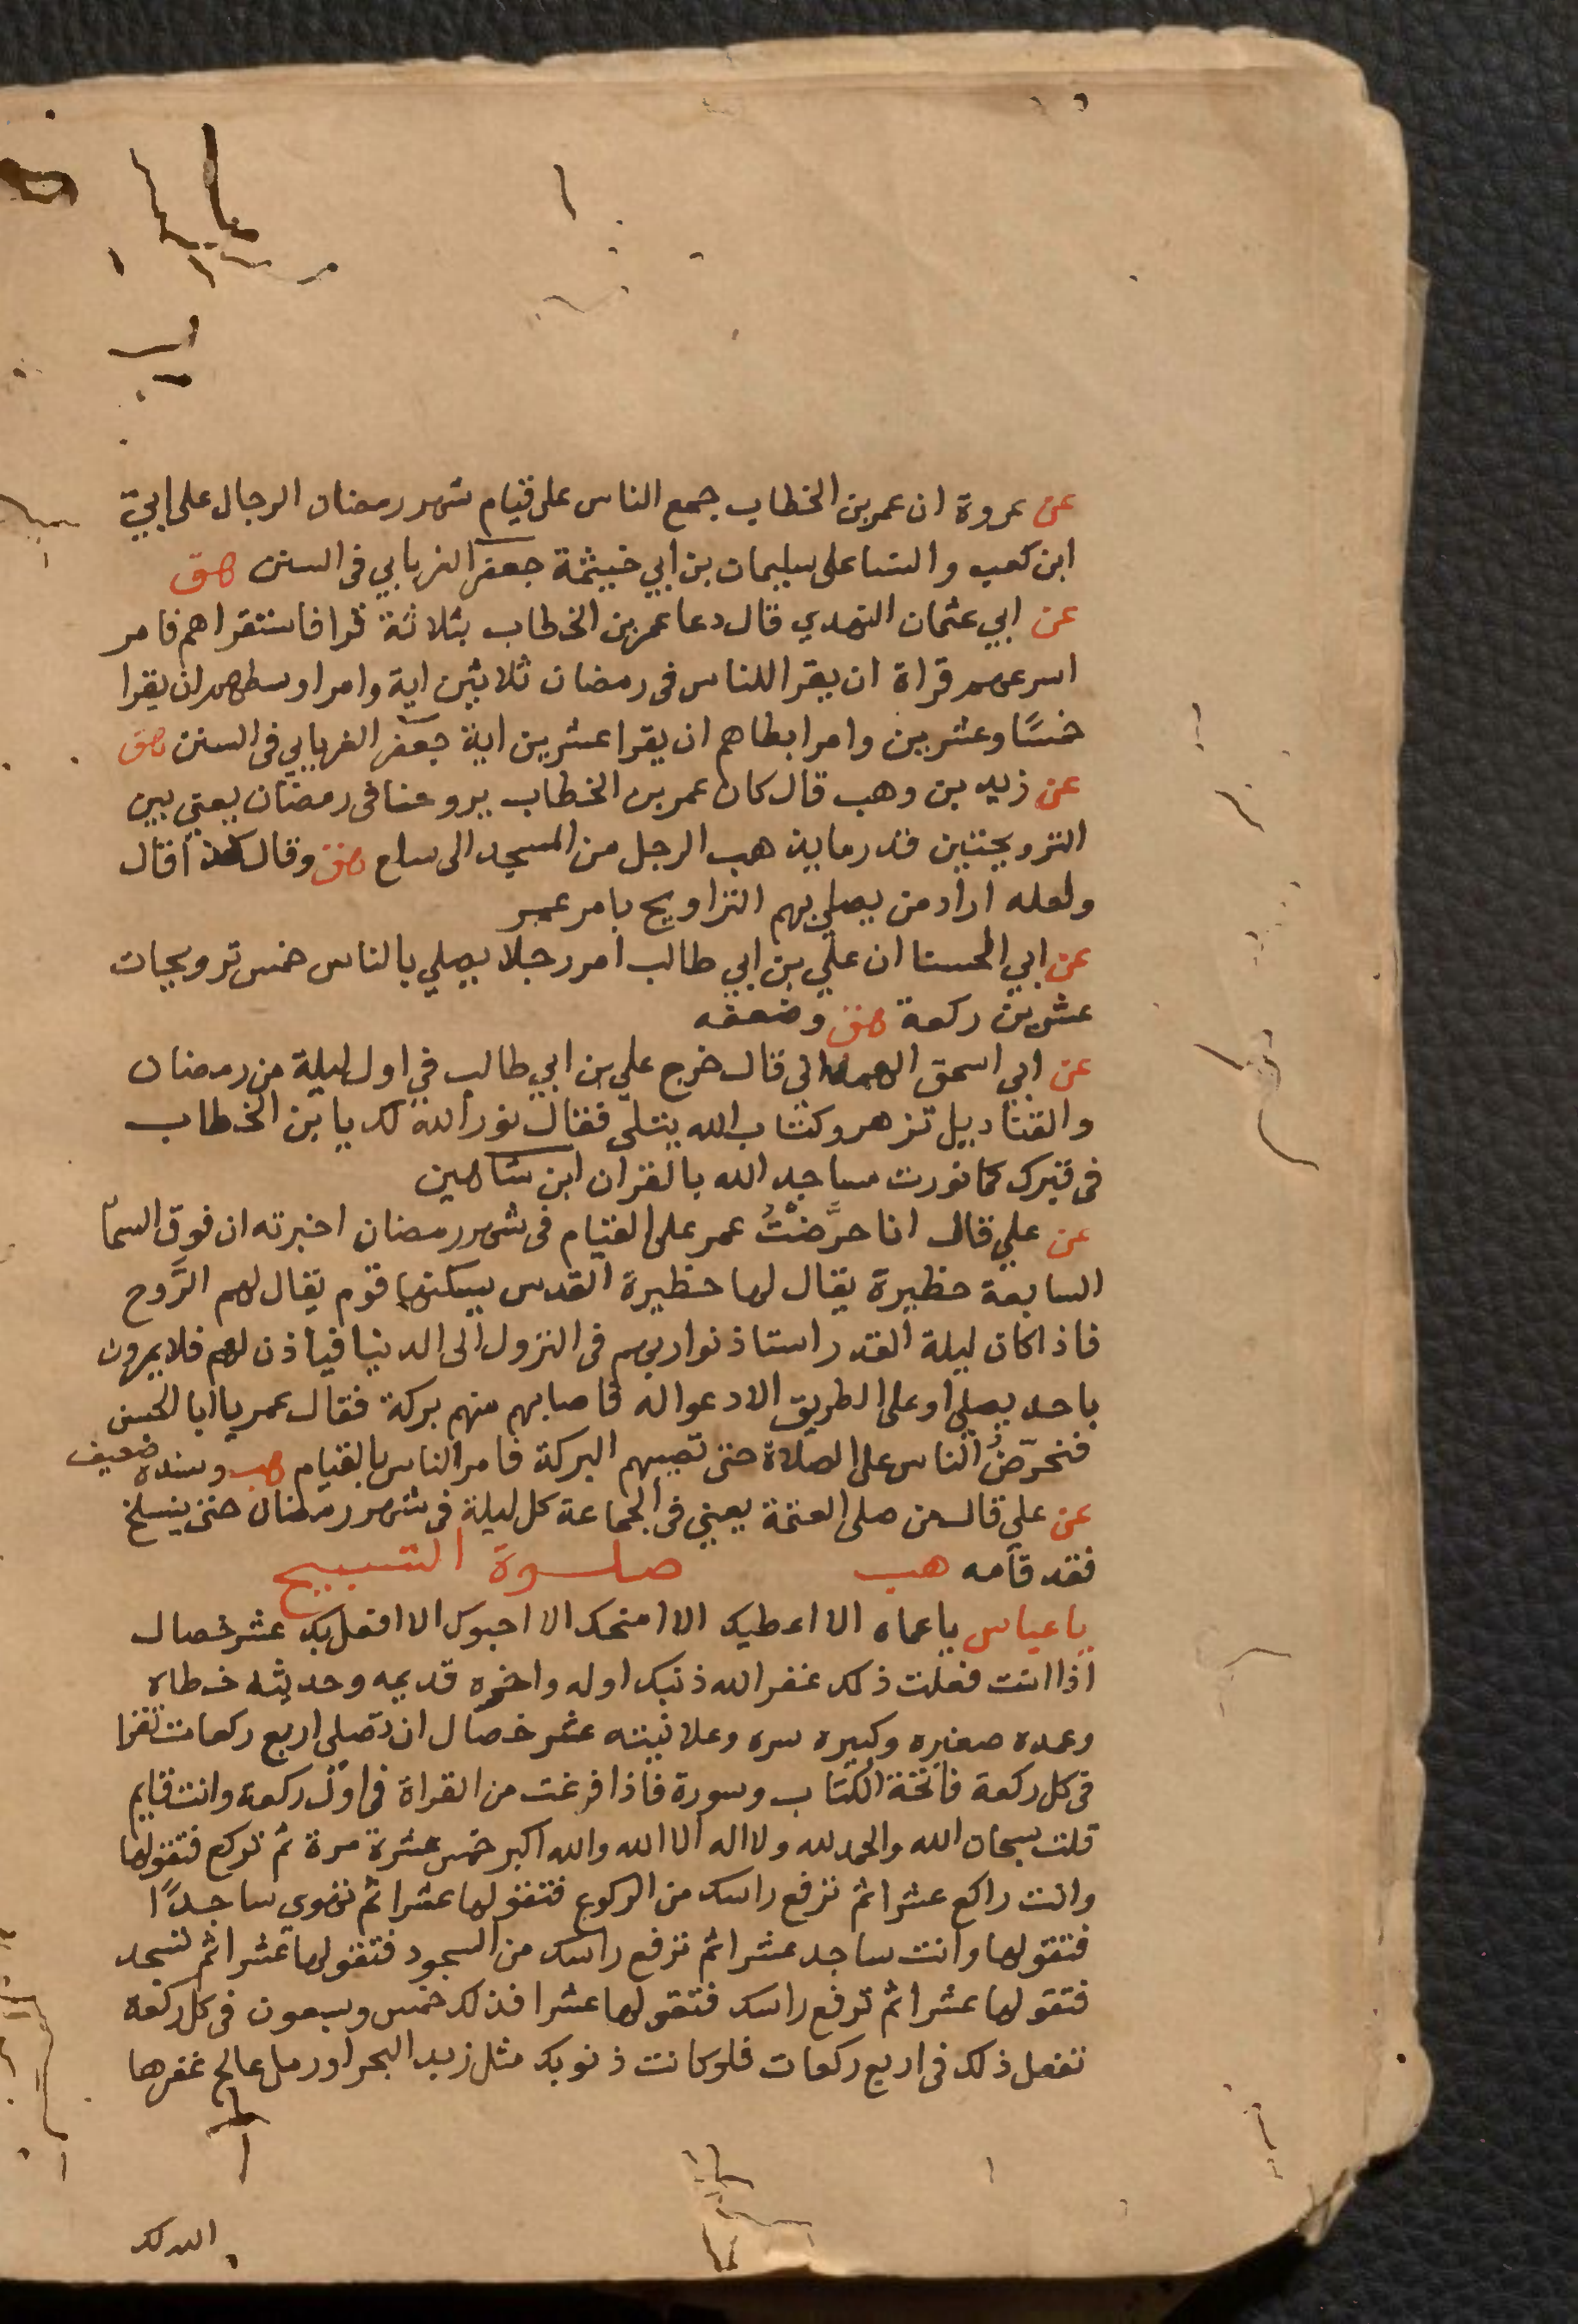 عن عروة ان عمر بن الخطاب جمع الناس على قيام شهر رمضان الرجال على ابيّ
ابن كعب والنسا على سليمان بن ابي خيثمة جعفر الفريابي فى السنن هق
عن ابي عثمان النهدي قال دعا عمر بن الخطاب بثلاثة قرا فاستقراهم فامر
اسرعهم قراة ان يقرا للناس فى رمضان ثلاثين اية وامر اوسطهم ان يقرا
خمسًا وعشرين وامر ابطاهم ان يقرا عشرين اية جعفر الفريابي فى السنن هق
عن زيد بن وهب قال كان عمر بن الخطاب يروحنا فى رمضان يعني بين
الترويحتين قدر ما يذهب الرجل من المسجد الى سلع هق وقال كذا قال
ولعله اراد من يصلي بهم التراويح بامر عمر
عن ابي الحسنا ان علي بن ابي طالب امر رجلا يصلي بالناس خمس ترويحات
عشرين ركعة هق وضعفه
عن ابي اسحق الهمداني قال خرج علي بن ابي طالب في اول ليلة من رمضان
والقناديل تزهر وكتاب الله يتلى فقال نور الله لك يا بن الخطاب
فى قبرك كما نورت مساجد الله بالقران ابن شاهين
عن علي قال انا حرَّضْتُ عمر على القيام فى شهر رمضان اخبرته ان فوق السمآ
السابعة حظيرة يقال لها حظيرة القدس يسكنها قوم يقال لهم الرّوح
فاذا كان ليلة القدر استاذنوا ربهم فى النزول الى الدنيا فياذن لهم فلا يمرون
باحد يصلي او على الطريق الا دعوا له فاصابهم منهم بركة فقال عمر يا ابا الحسن
فنحرّضُ الناس على الصلاة حتى تصيبهم البركة فامر الناس بالقيام هب وسنده ضعيف
عن علي قال من صلى العتمة يعني فى الجماعة كل ليلة فى شهر رمضان حتى ينسلخ
فقد قامه هب صلوة التسبيح
يا عباس يا عماه الا اعطيك الا امنحك الا احبوك الا افعل بك عشر خصال
اذا انت فعلت ذلك غفر الله ذنبك اوله واخره قديمه وحديثه خطاه
وعمده صغيره وكبيره سره وعلانيته عشر خصال ان تصلي اربع ركعات تقرا
فى كل ركعة فاتحة الكتاب وسورة فاذا فرغت من القراة فى اول ركعة وانت قايم
قلت سبحان الله والحمد لله ولا اله الا الله والله اكبر خمس عشرة مرة ثم تركع فتقولها
وانت راكع عشرا ثم ترفع راسك من الركوع فتقولها عشرا ثم تهوي ساجدًا
فتقولها وانت ساجد عشرا ثم ترفع راسك من السجود فتقولها عشرا ثم تسجد
فتقولها عشرا ثم ترفع راسك فتقولها عشرا فذلك خمس وسبعون فى كل ركعة
تفعل ذلك فى اربع ركعات فلو كانت ذنوبك مثل زبد البحر او رمل عالج غفرها
الله لك